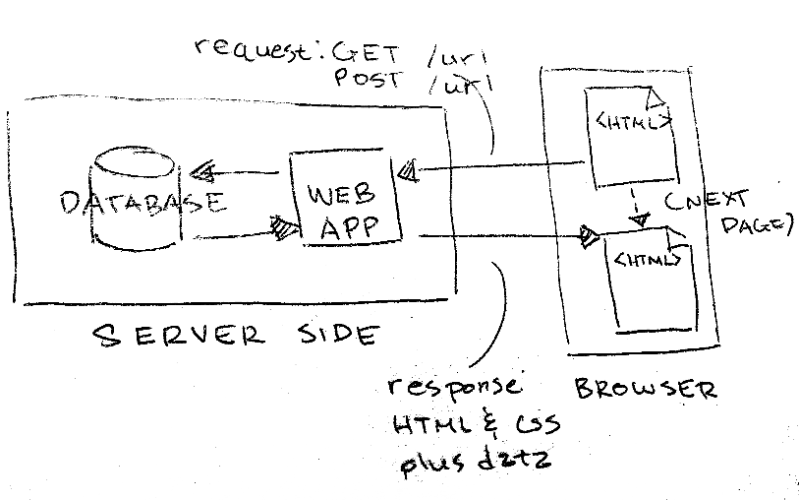 request: GET /url
POST /url
<HTML>
DATABASE
WEB
APP
(NEXT
PAGE)
<HTML>
SERVER SIDE
response:
HTML & CSS
plus data
BROWSER